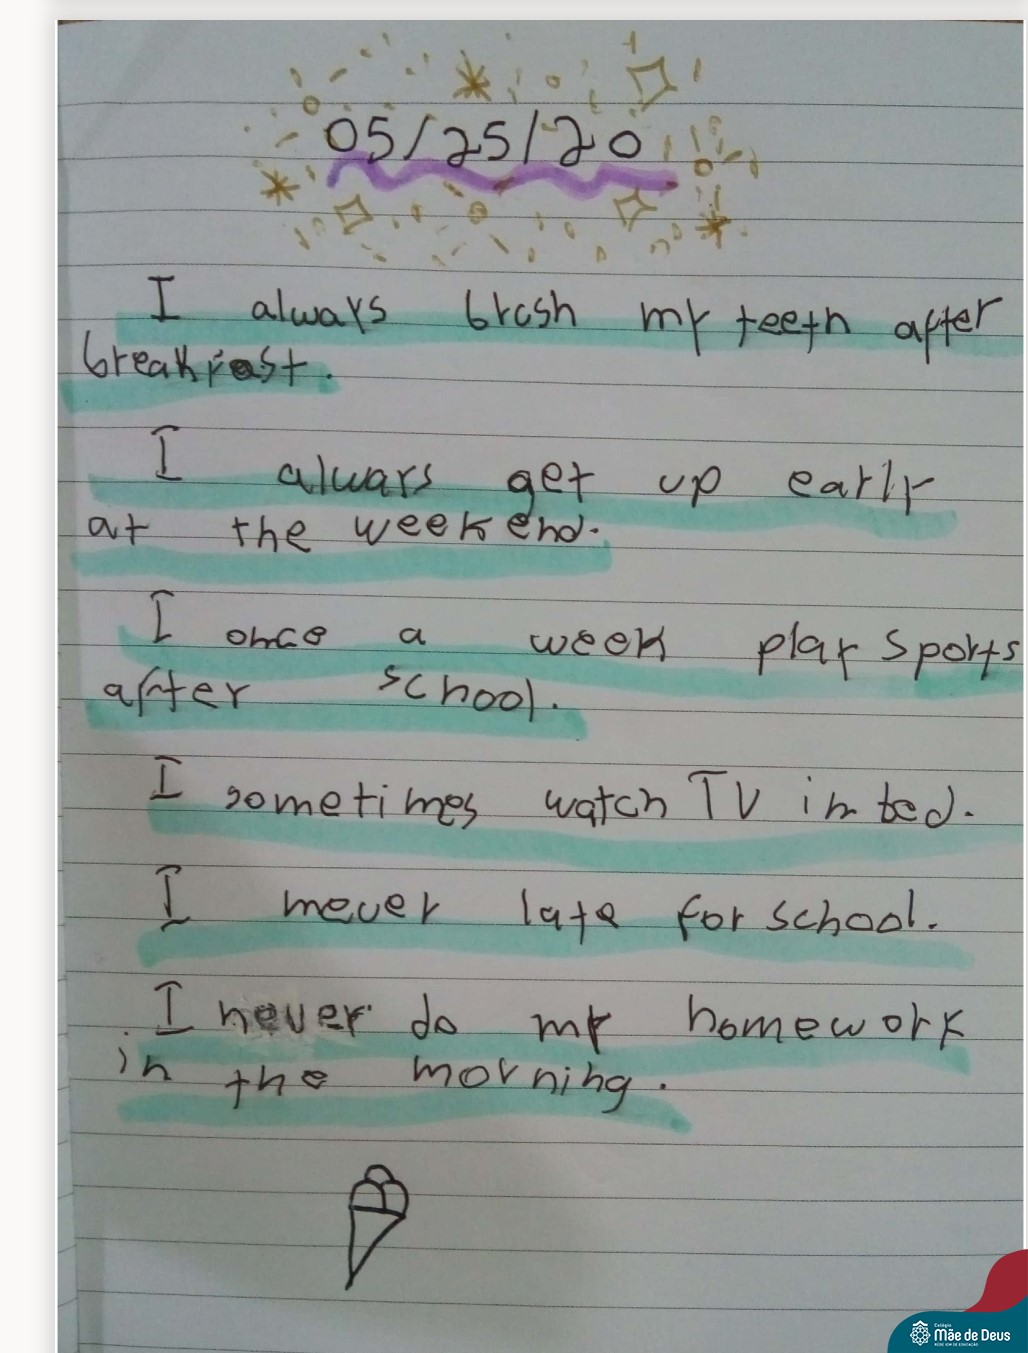 05/25/20
I always brash my teeth after
breakfast.
I always get up early
at the weekend.
I once a week play sports
after school.
I sometimes watch TV in bed.
I never late for school.
I never do my homework
in the morning.
Colégio
Mãe de Deus
REDE ICM DE EDUCAÇÃO